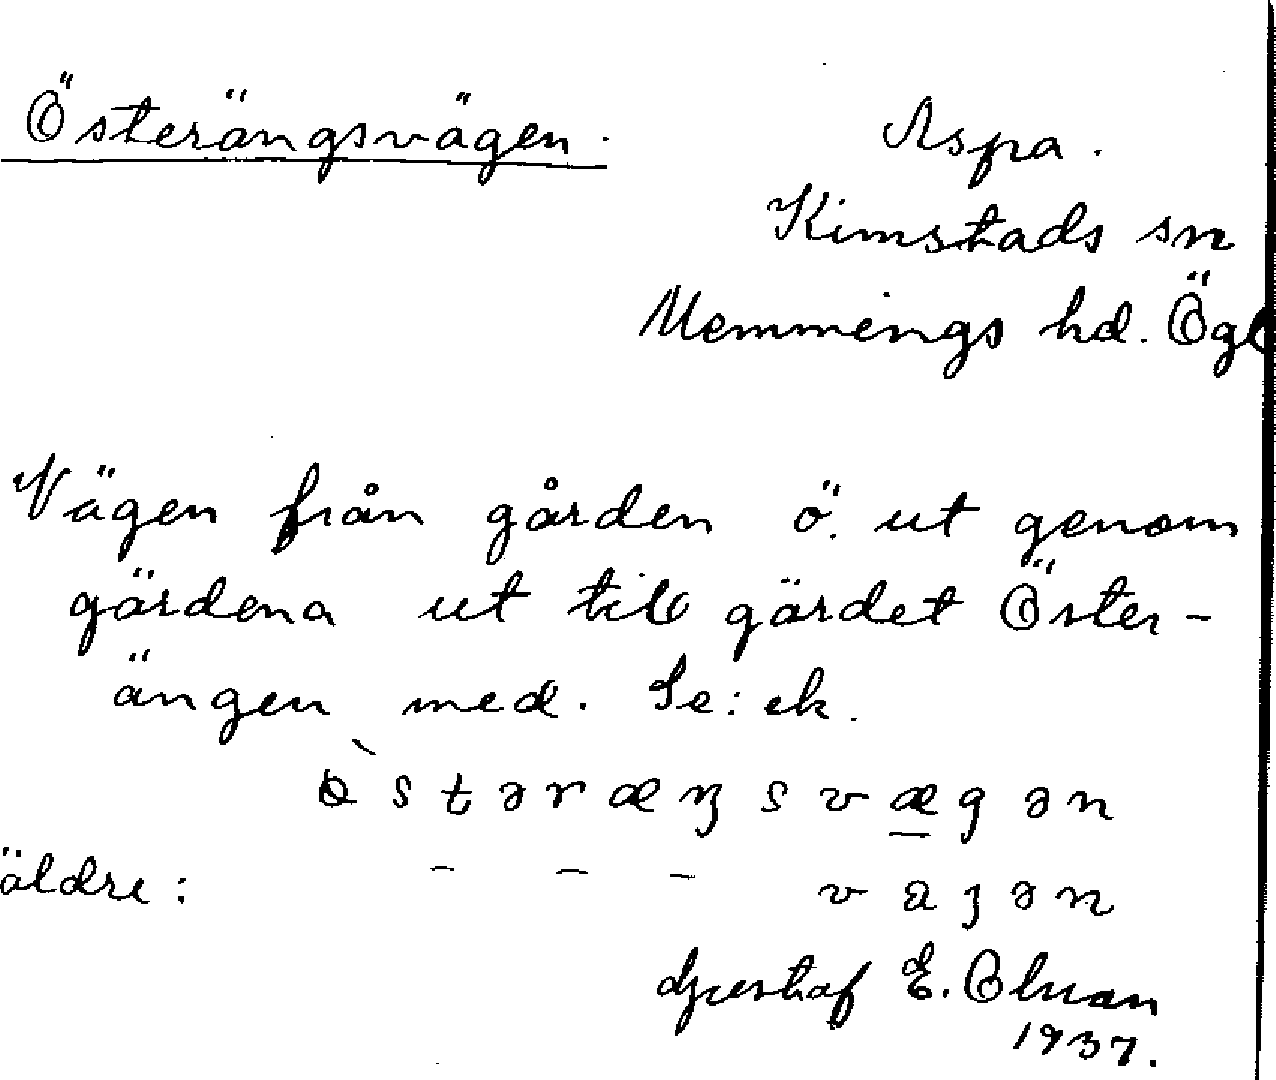 Österängsvägen.
Aspa.
Kimstads sn
Memmings hd. Ögl
Vägen från gården ö. ut genom
gärdena ut till gärdet Öster-
ängen med. Se: ek.
äldre: – – –
Gustaf E. Olson
1937.